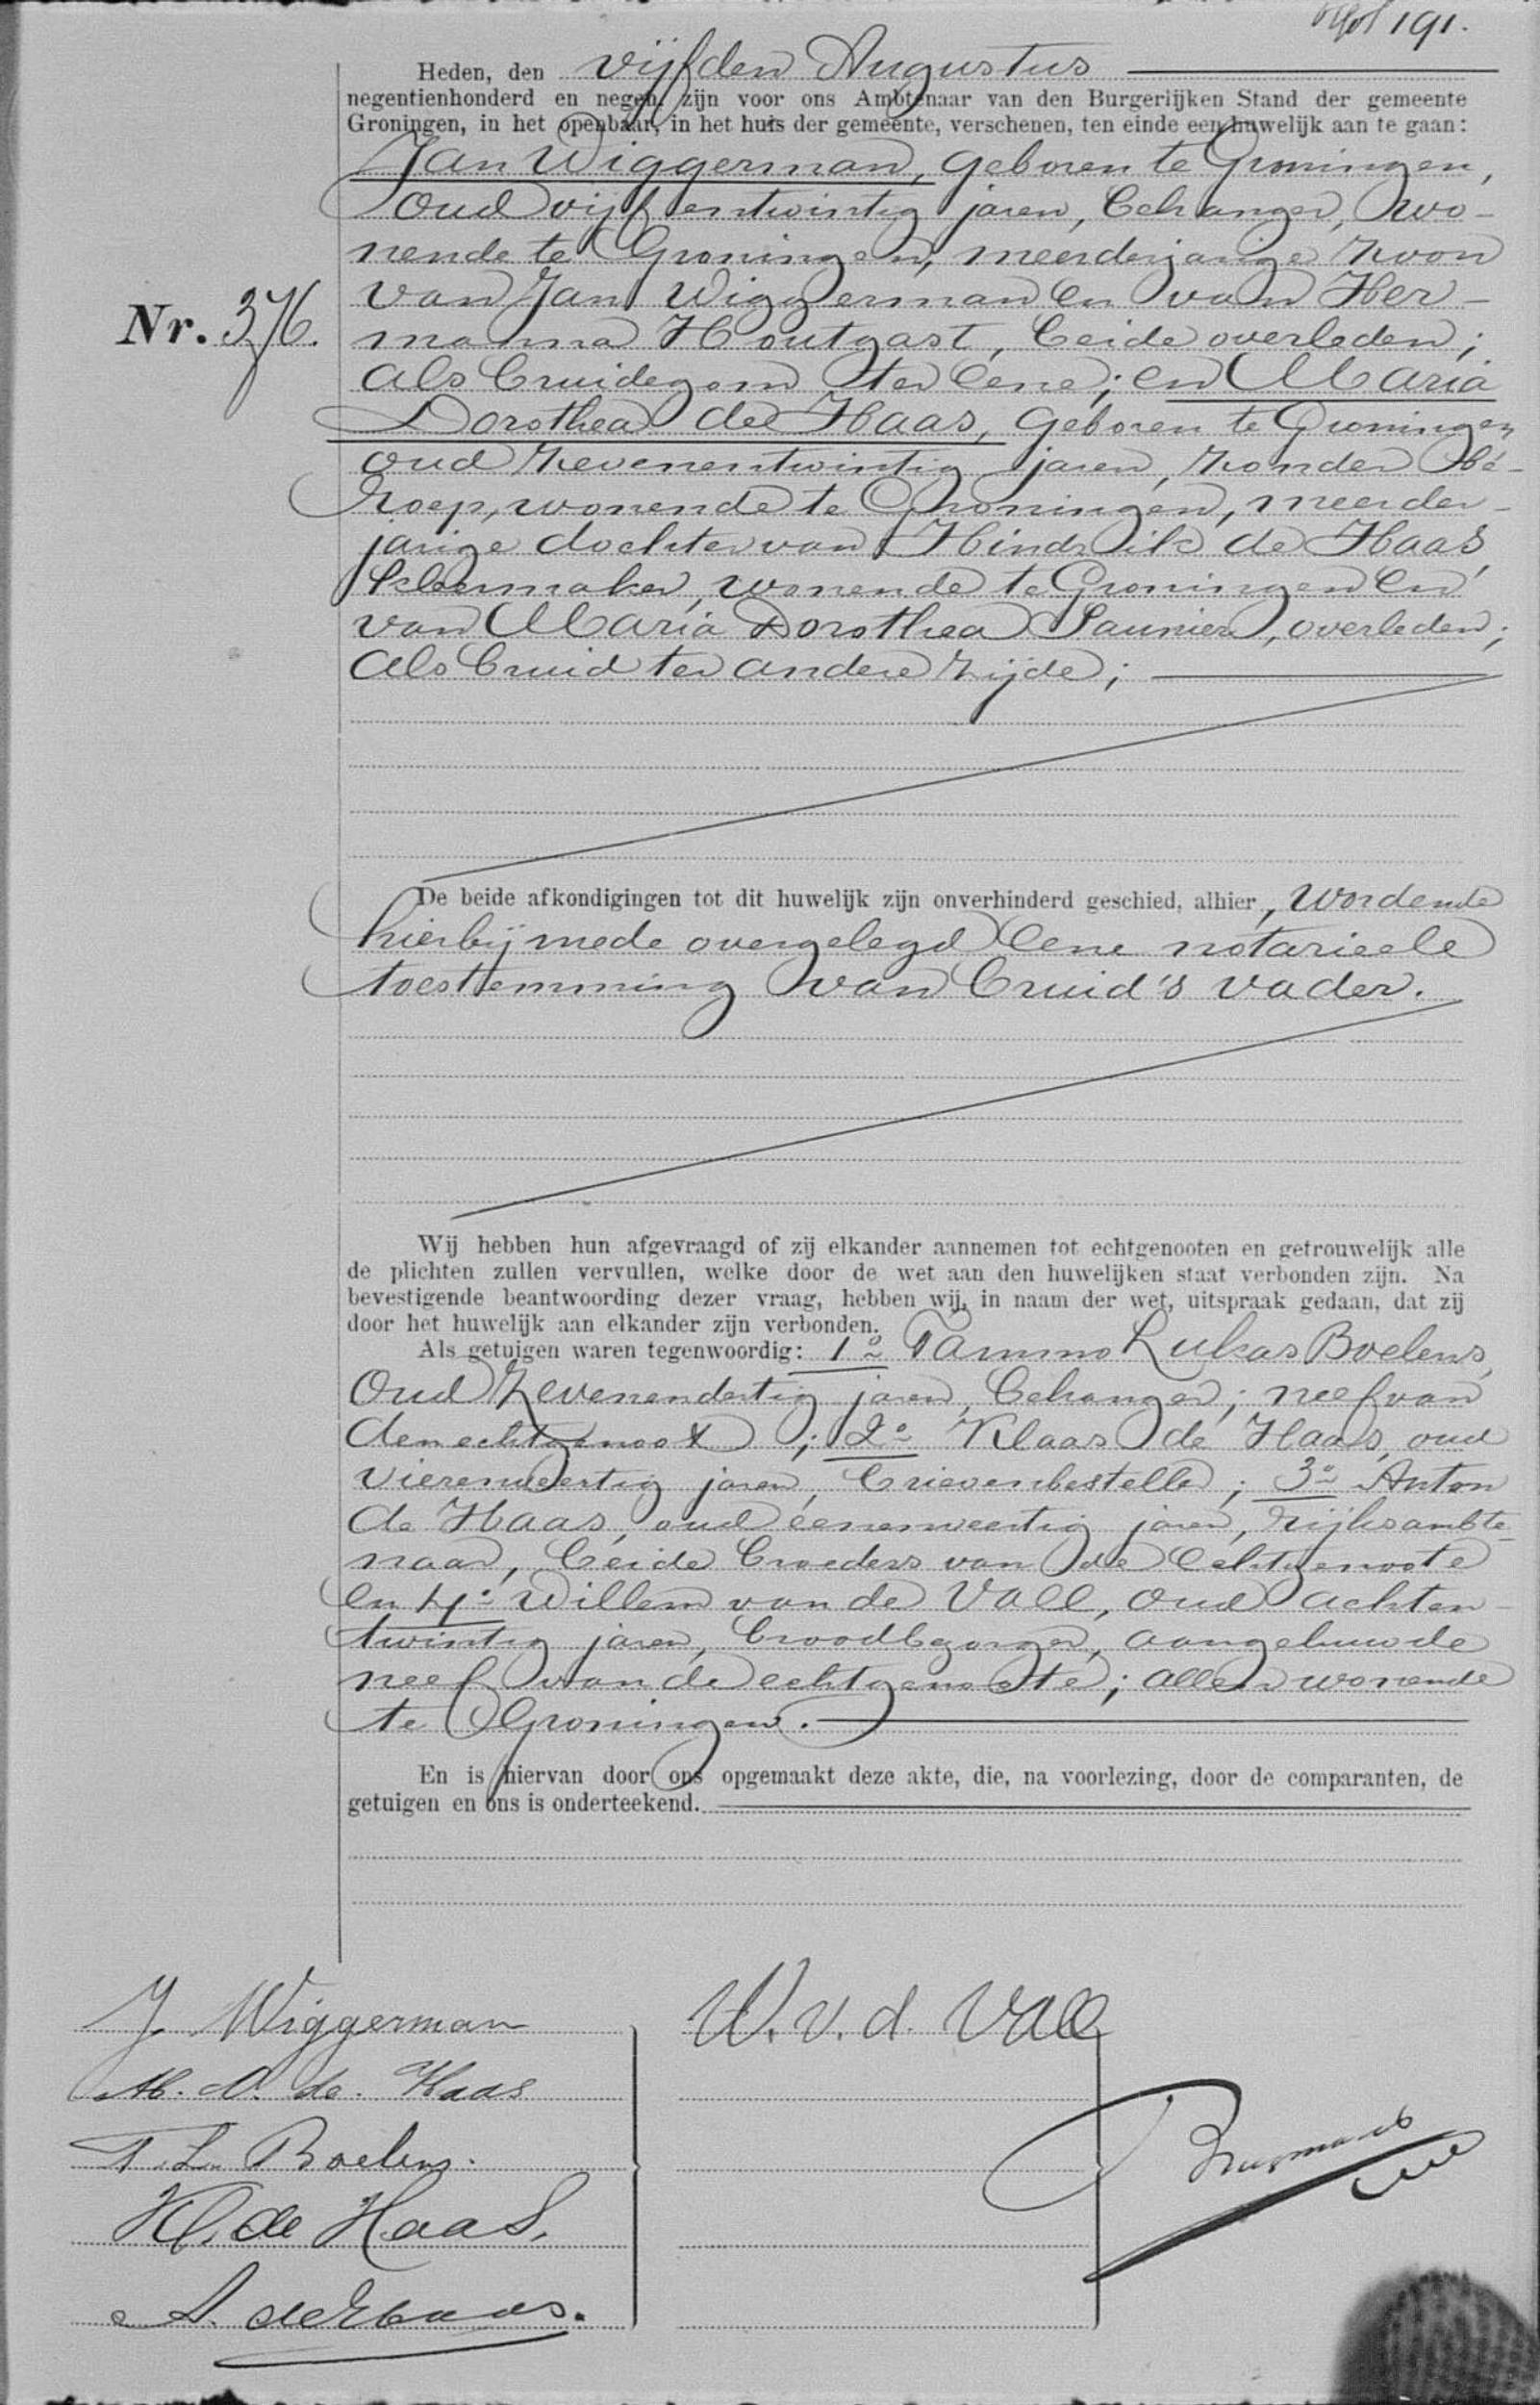 191.
Heden, den vijfden Augustus
negentienhonderd en negen, zijn voor ons Ambtenaar van den Burgerlijken Stand der gemeente
Groningen, in het openbaar, in het huis der gemeente, verschenen, ten einde een huwelijk aan te gaan:
Jan Wiggerman, geboren te Groningen,
oud vijfentwintig jaren, behanger, wo-
nende te Groningen, meerderjarige zoon
van Jan Wiggerman en van Her-
Nr. 376.
manna Houtgast, beide overleden;
als bruidegom ter eene; en Maria
Dorothea de Haas, geboren te Groningen
oud zevenentwintig jaren, zonder be-
roep, wonende te Groningen, meerder-
jarige dochter van Hindrik de Haas,
kleermaker, wonende te Groningen en
van Maria Dorothea Saunier, overleden;
als bruid ter andere zijde;
De beide afkondigingen tot dit huwelijk zijn onverhinderd geschied, alhier, wordende
hierbij mede overgelegd eene notarieele
toestemming van bruid's vader.
Wij hebben hun afgevraagd of zij elkander aannemen tot echtgenooten en getrouwelijk alle
de plichten zullen vervullen, welke door de wet aan den huwelijken staat verbonden zijn. Na
bevestigende beantwoording dezer vraag, hebben wij, in naam der wet, uitspraak gedaan, dat zij
door het huwelijk aan elkander zijn verbonden.
Als getuigen waren tegenwoordig: 1o Tammo Lukas Boelens,
oud zevenendertig jaren, behanger; neef van
den echtgenoot; 2o Klaas de Haas, oud
vierenveertig jaren, brievenbesteller; 3o Anton
de Haas, oud éénenveertig jaren, rijksambte-
naar, beide broeders van de echtgenoote
en 4o Willem van de Vall, oud achten-
twintig jaren, broodbezorger, aangehuwde
neef van de echtgenoote; allen wonende
te Groningen.
En is hiervan door ons opgemaakt deze akte, die, na voorlezing, door de comparanten, de
getuigen en ons is onderteekend.
J. Wiggerman
M. D. de Haas
T. L. Boelens.
Kl. de Haas.
A. de Haas.
W. v. d. Vall